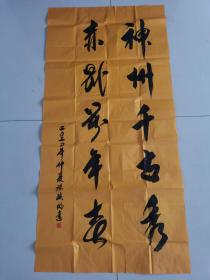 神州千古秀
赤县万年春
二〇二〇年仲夏